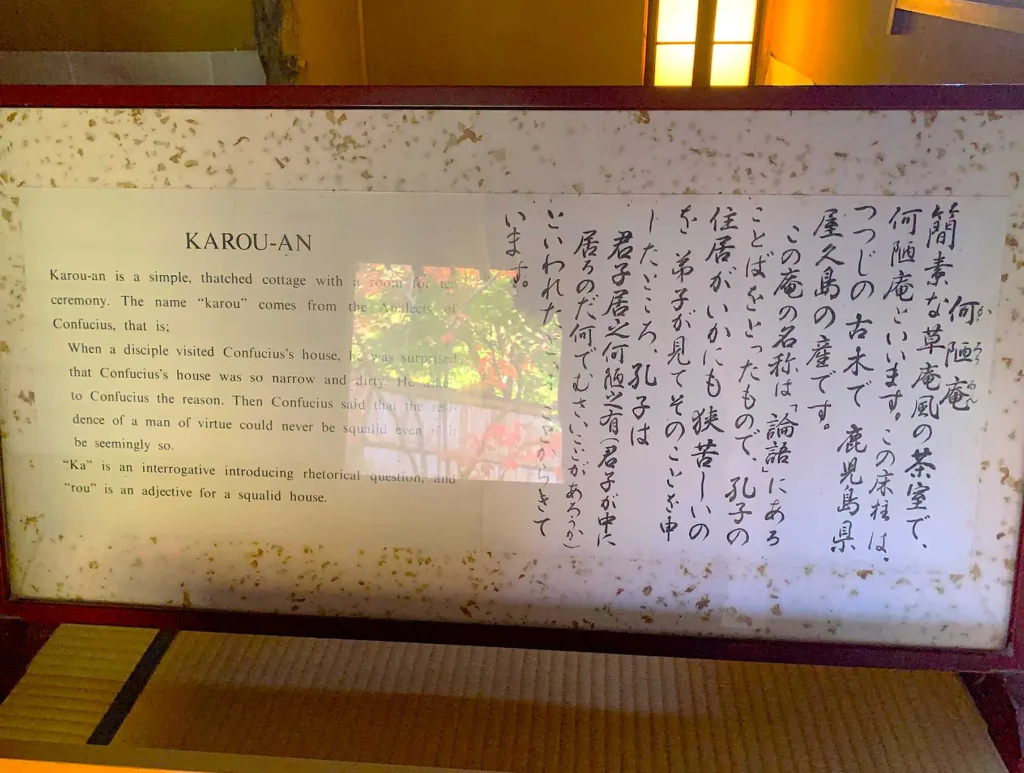 KAROU-AN
Karou-an is a simple, thatched cottage with a room for tea
ceremony. The name “karou” comes from the Analects of
Confucius, that is;
When a disciple visited Confucius's house, he was surprised
that Confucius's house was so narrow and dirty. He asked
to Confucius the reason. Then Confucius said that the resi-
dence of a man of virtue could never be squalid even if it
be seemingly so.
“Ka” is an interrogative introducing rhetorical question, and
“rou” is an adjective for a squalid house.
何陋庵
か ろう あん
簡素な草庵風の茶室で、
何陋庵といいます。この床柱は、
つつじの古木で 鹿児島県
屋久島の産です。
この庵の名称は「論語」にある
ことばをとったもので、孔子の
住居がいかにも狭苦しいの
を 弟子が見てそのことを申
したところ、孔子は
君子居之何陋之有(君子が中に
居るのだ何でむさいことがあろうか)
といわれた ことからきて
います。